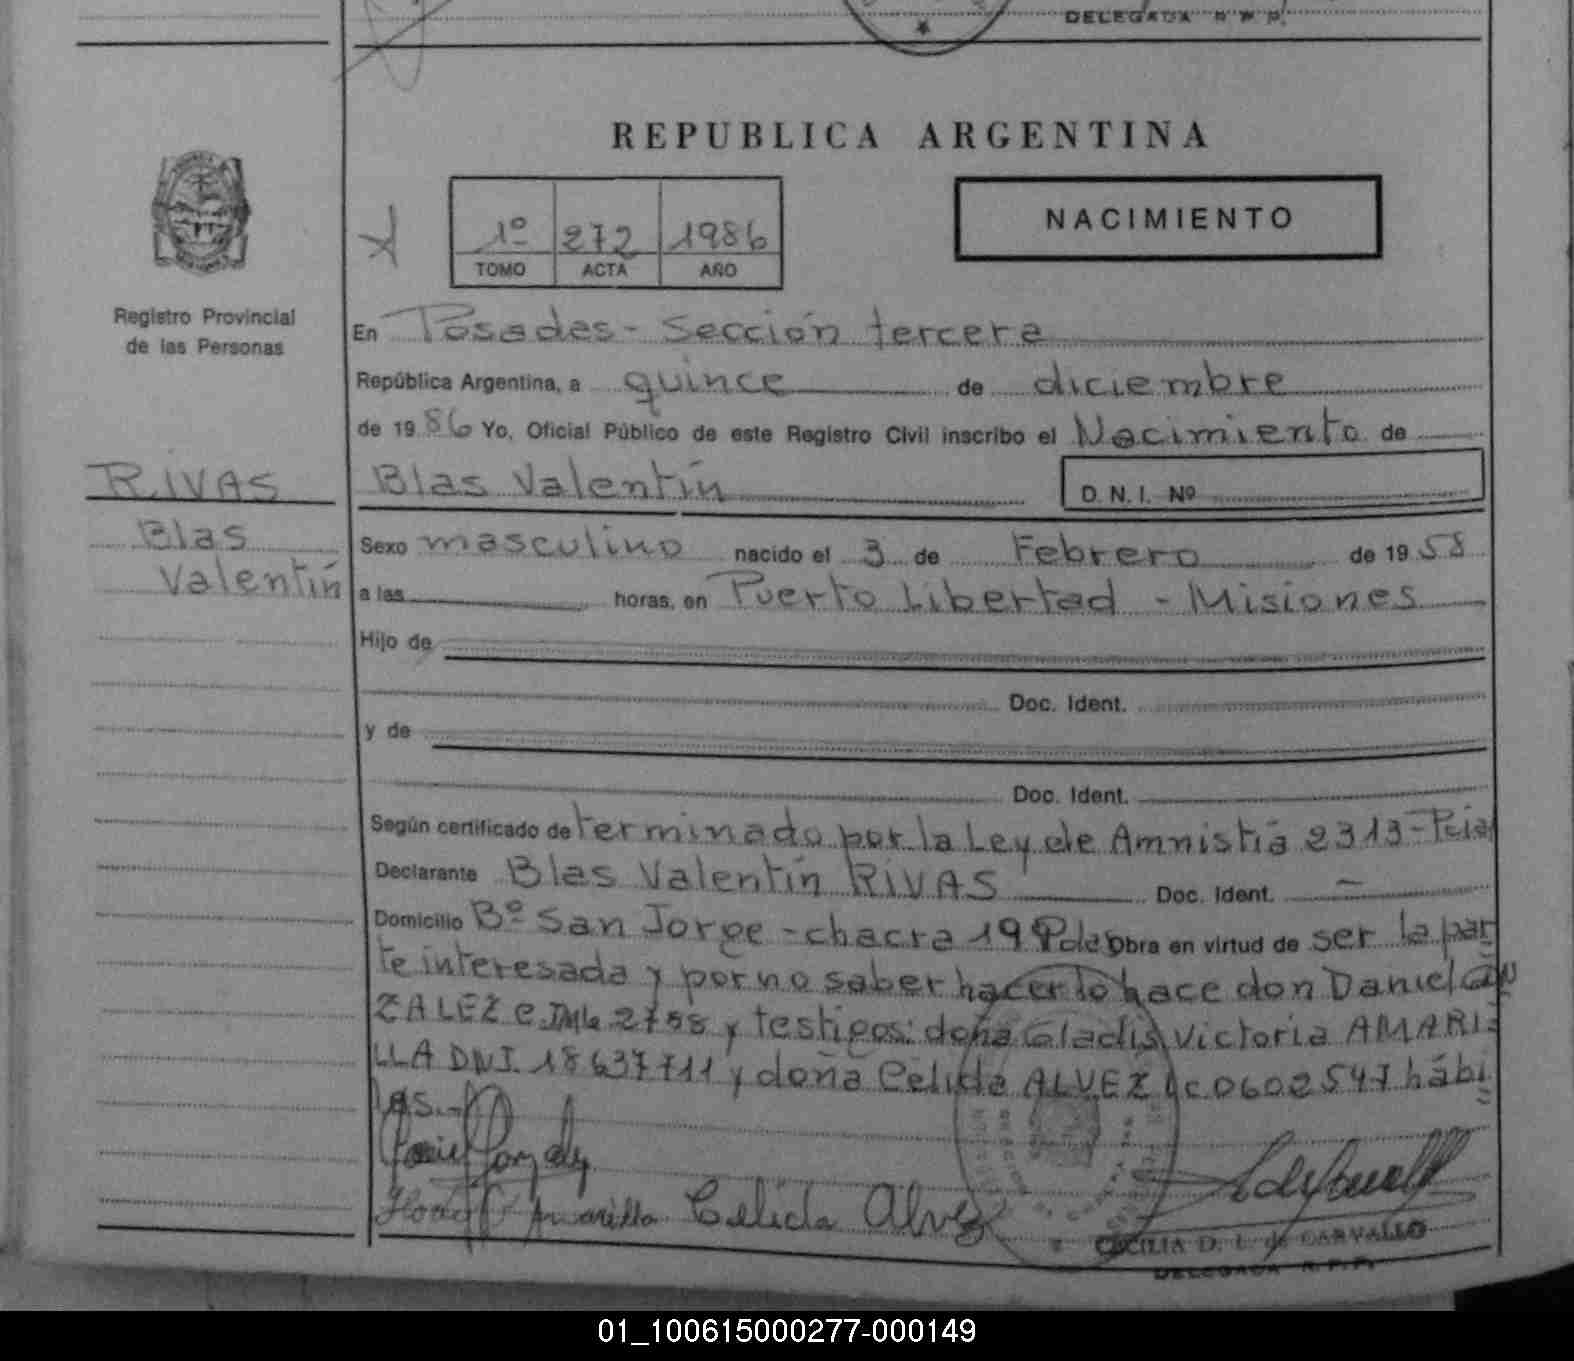 DELEGADA R. P. P.
REPUBLICA ARGENTINA
NACIMIENTO
1º 272 1986
TOMO ACTA AÑO
Registro Provincial
de las Personas
En Posadas - Sección tercera
República Argentina, a quince de diciembre
de 1986 Yo, Oficial Público de este Registro Civil inscribo el Nacimiento de
RIVAS
Blas Valentín
D. N. I. Nº
Blas
Valentín
Sexo masculino nacido el 3 de Febrero de 1958
a las horas, en Puerto Libertad - Misiones
Hijo de
Doc. Ident.
y de
Doc. Ident.
Según certificado de terminado por la Ley de Amnistía 2313-Pcial
Declarante Blas Valentín RIVAS Doc. Ident. —
Domicilio Bº San Jorge - chacra 19 Pdas Obra en virtud de ser la par
te interesada y por no saber hacerlo hace don Daniel GON
ZALEZ 2758 y testigos: doña Gladis Victoria AMARI=
LLA DNI. 18637711 y doña Celida ALVEZ LC0602547 hábi
les.-
Amarilla Celida Alvez
CECILIA D. L. de CARVALLO
DELEGADA R. P. P.
01_100615000277-000149